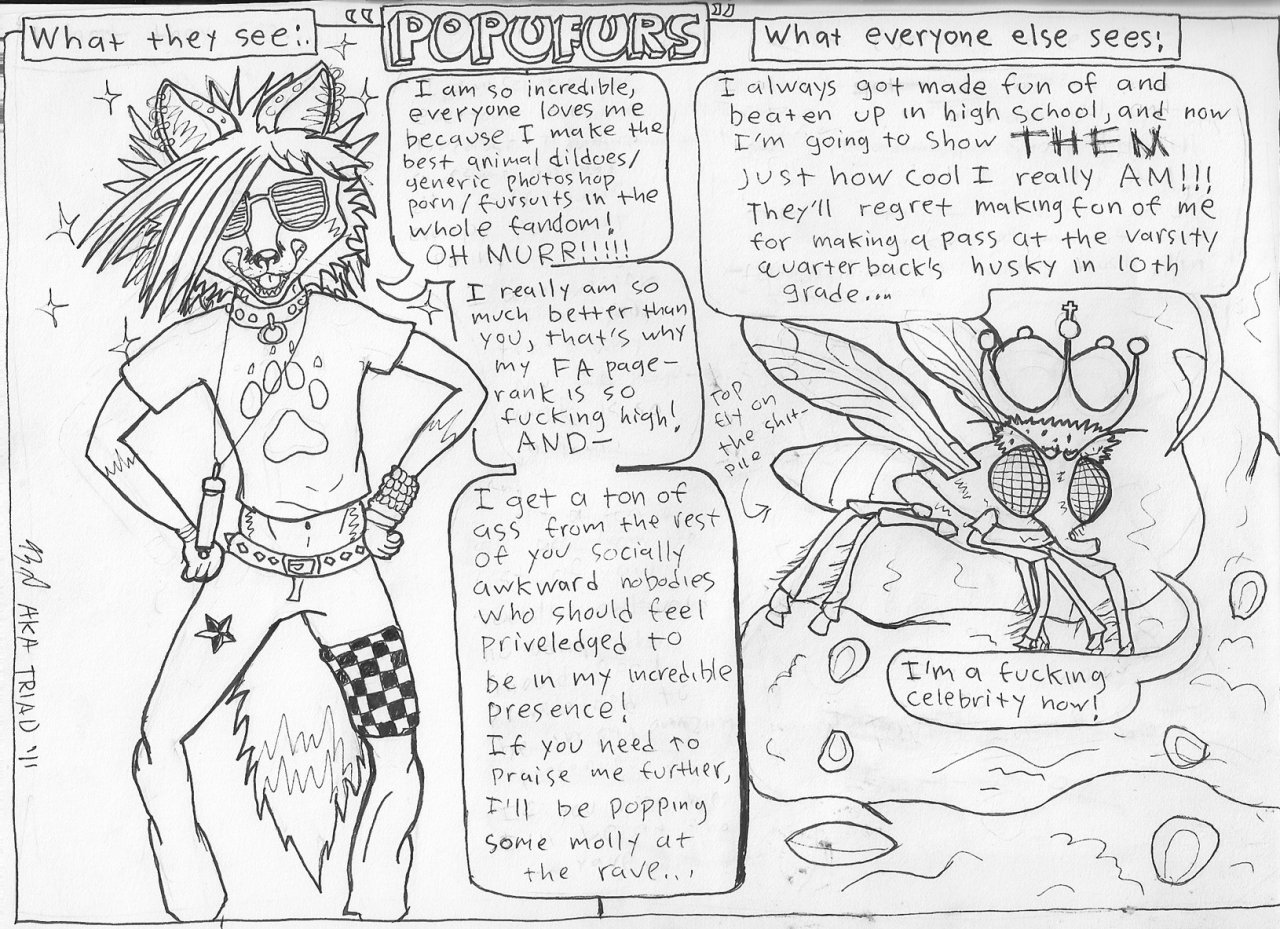 What they see:.
"POPUFURS"
What everyone else sees:
I am so incredible,
everyone loves me
because I make the
best animal dildoes/
generic photoshop
porn/fursuits in the
whole fandom!
OH MURR!!!!!
I really am so
much better than
you, that's why
my FA page-
rank is so
fucking high!
AND—
I get a ton of
ass from the rest
of you socially
awkward nobodies
who should feel
priveledged to
be in my incredible
presence!
If you need to
praise me further,
I'll be popping
some molly at
the rave...
I always got made fun of and
beaten up in high school, and now
I'm going to show THEM
just how cool I really AM!!!
They'll regret making fun of me
for making a pass at the varsity
quarterback's husky in 10th
grade...
Top
fly on
the shit-
pile
I'm a fucking
celebrity now!
AKA TRIAD '11